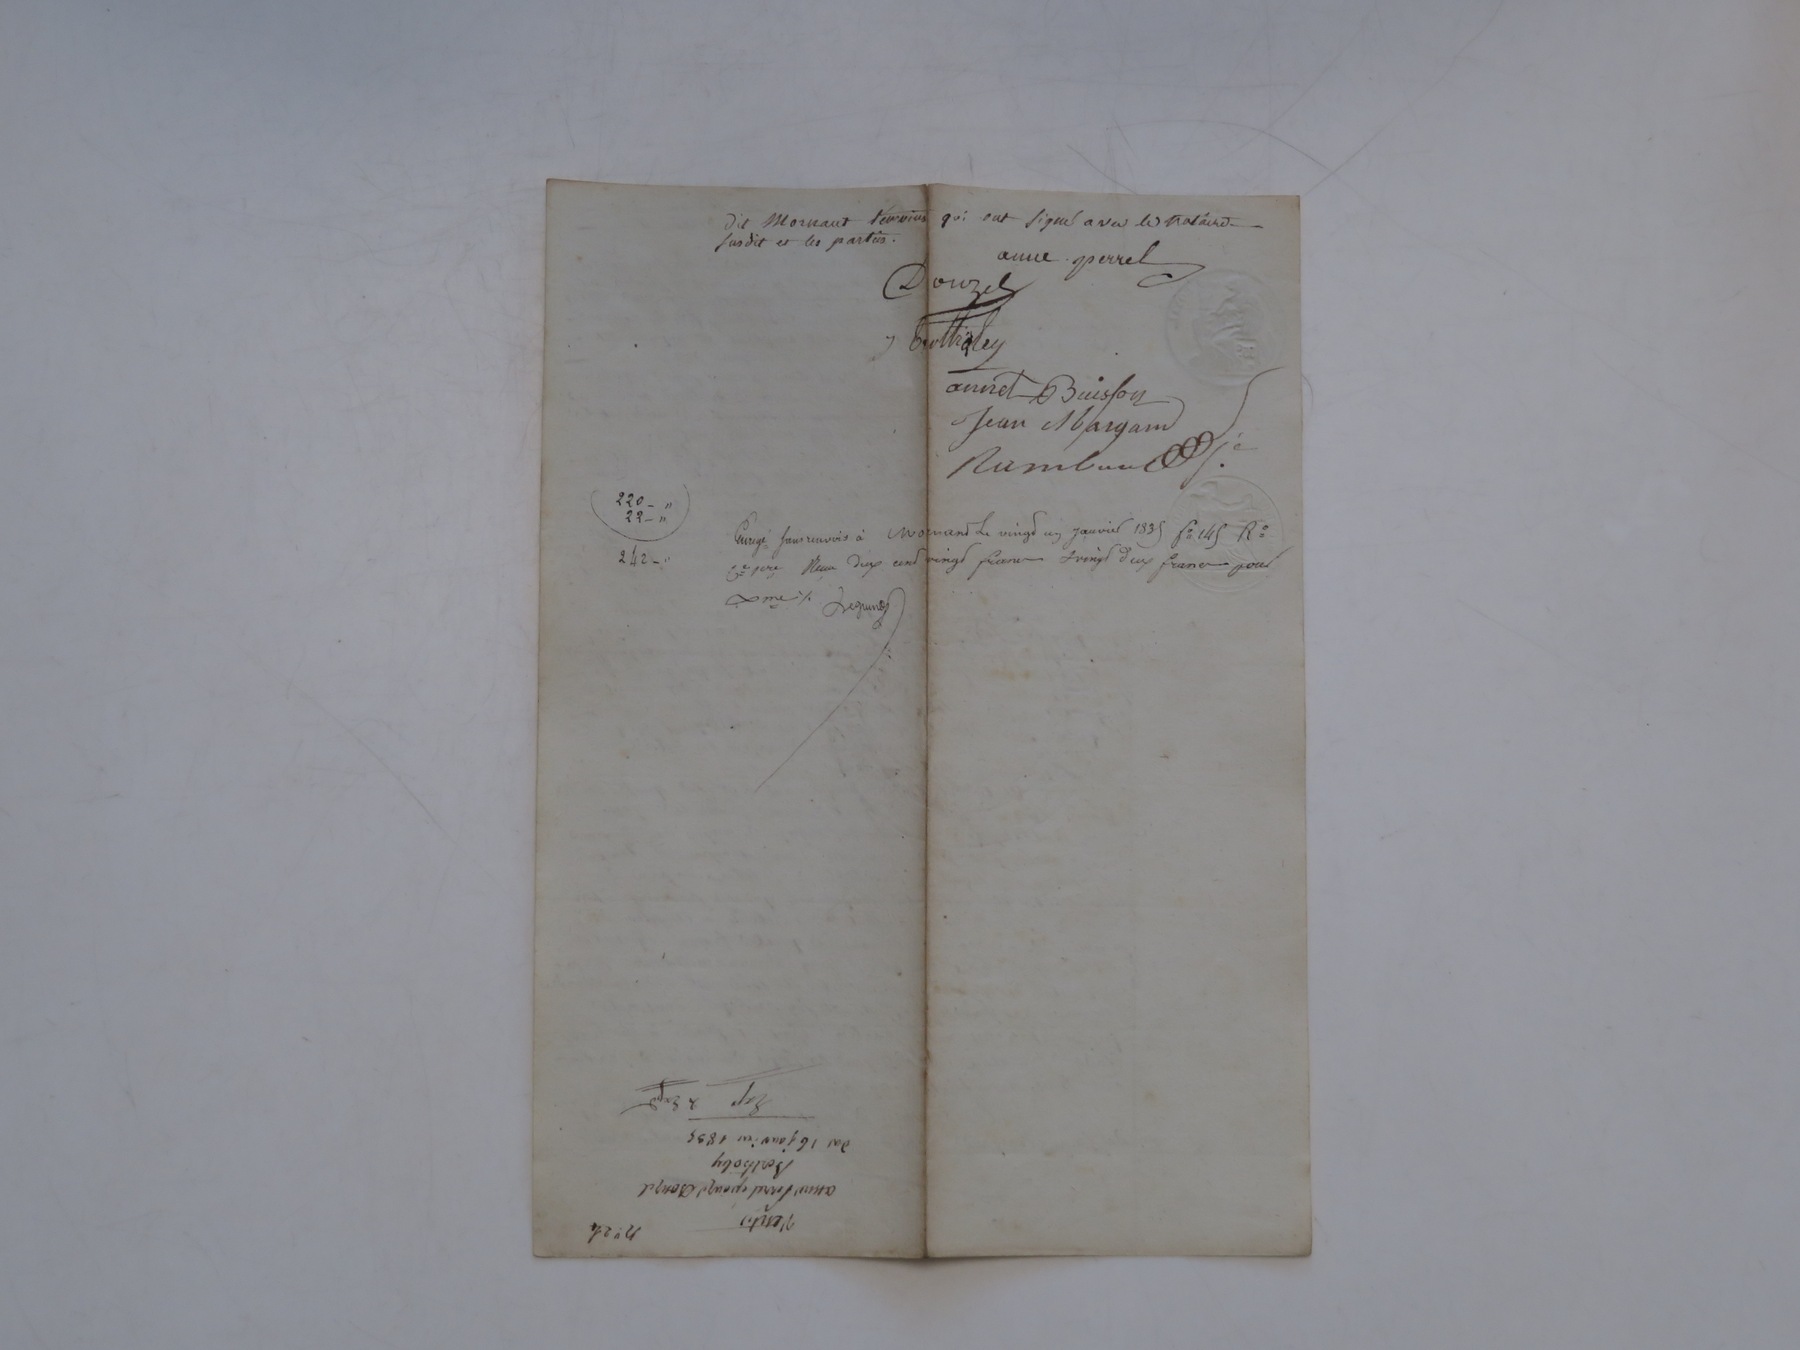 dit Mornant témoins qui ont signé avec le notaire
susdit et les parties.
anne perrel
Donzel
anriet Buisson
Jean Margand
Rambau
220 - "
22 - "
242 - "
à Mornant le vingt un janvier 1835 fo 145 Ro
Reçu deux cent vingt francs & vingt deux francs pour
Legrand
No 24
Vente
anne Perrel épouse Donzel
Bertholey
du 16 janvier 1835